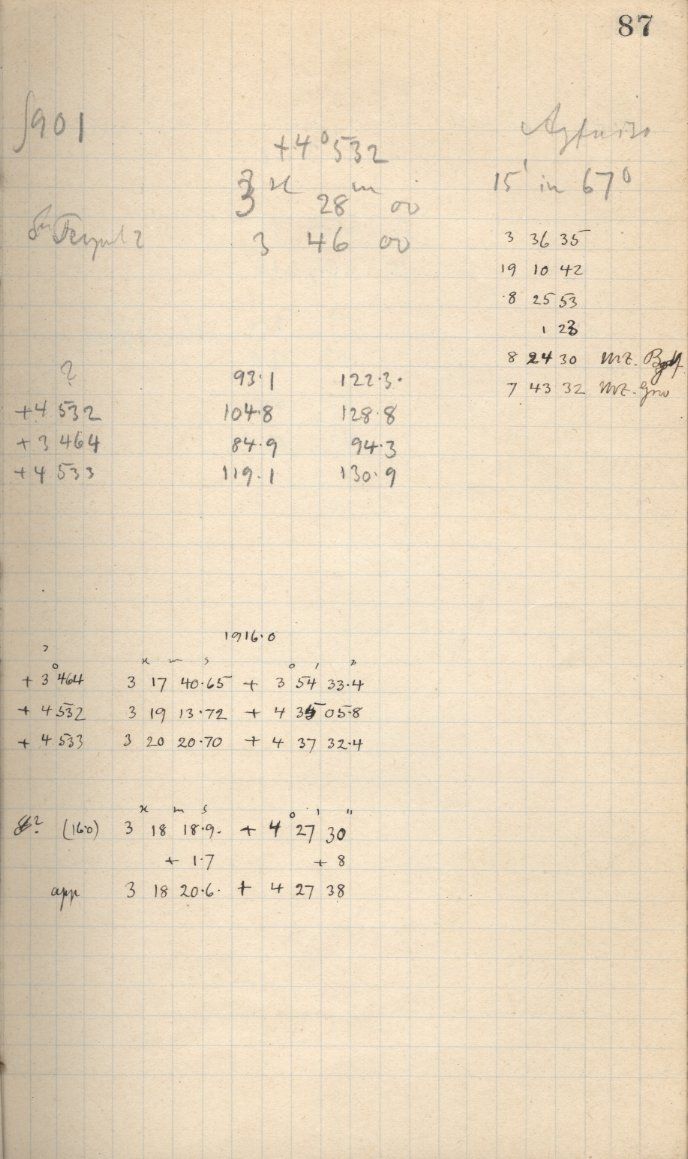 87
901
+4° 532
15' in 67°
3 H 28 m 00
3 46 00
3 36 35
19 10 42
8 25 53
1 23
8 24 30 MZ.
7 43 32 MZ.
? 93.1 122.3.
+4 532 104.8 128.8
+3 464 84.9 94.3
+4 533 119.1 130.9
1916.0
H m s ° ' "
+3° 464 3 17 40.65 + 3 54 33.4
+4 532 3 19 13.72 + 4 35 05.8
+4 533 3 20 20.70 + 4 37 32.4
H m s ° ' "
(16.0) 3 18 18.9. + 4 27 30
+ 1.7 + 8
app 3 18 20.6. + 4 27 38